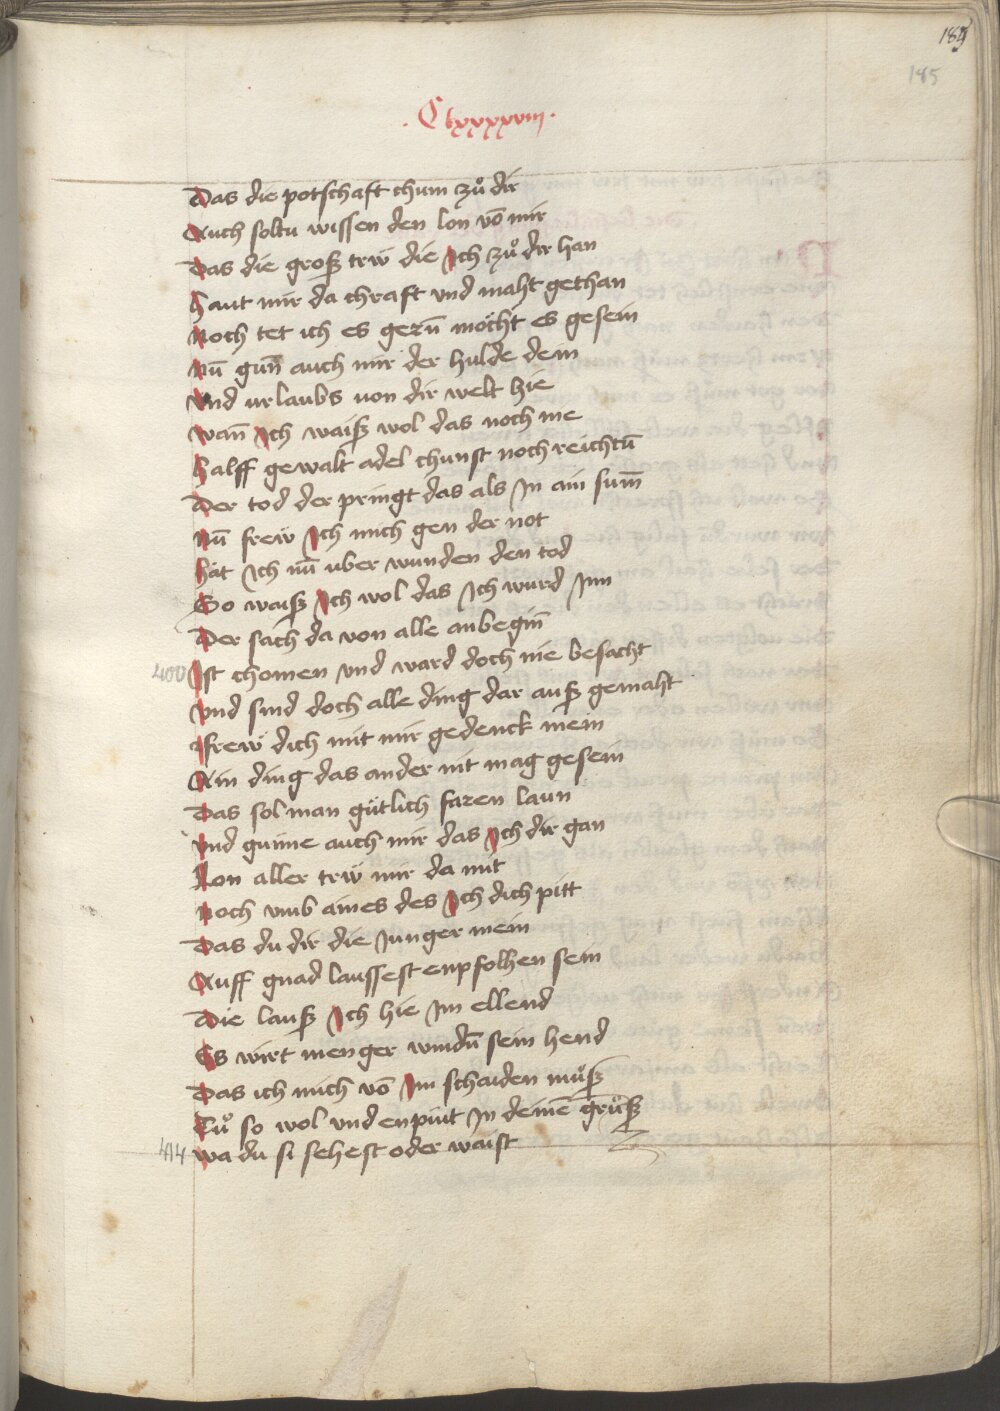 189
185
. Clxxxxviij .
Das die potschaft chum zuͦ dir
Auch soltu wissen den lon vō mir
Das die groß trẅ die Ich zuͦ dir han
Haut mir da chraft vnd maht gethan
Noch tet ich es gerñ möcht es gesein
Nū gun̄ auch mir der hulde dein
Vnd urlaubs uon dir welt hie
wan̄ Ich waiß wol das noch nie
halff gewalt adel chunst noch reichtū
Der tod der pringt das als In ain sum̄
Nū frew̋ Ich mich gen der not
hät Ich nū uber wunden den tod
So waiß Ich wol das Ich wurd Inn
Der sach da von alle anbegin̄
400 Ist chomen vnd ward doch nie besacht
Vnd sind doch alle ding dar auß gemaht
frew̋ dich mit mir gedenck mein
Ain ding das ander nit mag gesein
Das sol man gütlich faren laun
Vnd gunne auch mir das Ich dir gan
Lon aller trẅ mir da mit
Noch vmb aines des Ich dich pitt
Das du dir die Iunger mein
Auff gnad laussest enpfolhen sein
Die lauß Ich hie Im ellend
Es wirt menger windn̄ sein hend
Das ich mich vō Im schaiden muͤß
Tuͦ so wol vnd enpiut In deinē gruͤß
414 wa du si sehest oder waist